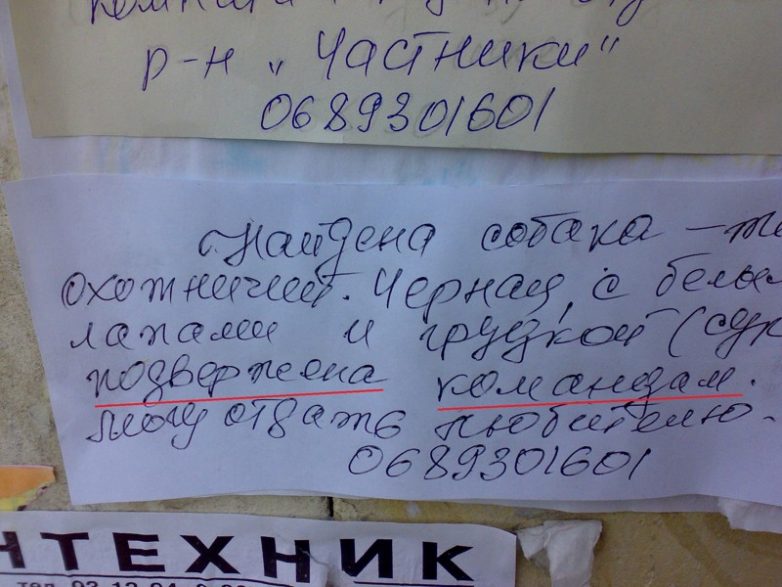 р-н „Частники“
0689301601
Найдена собака – 
охотничий. Черная, с белы
лапами и грудкой (
подвержена командам.
могу отдать любителю.
0689301601
НТЕХНИК
тел. 93-12-04